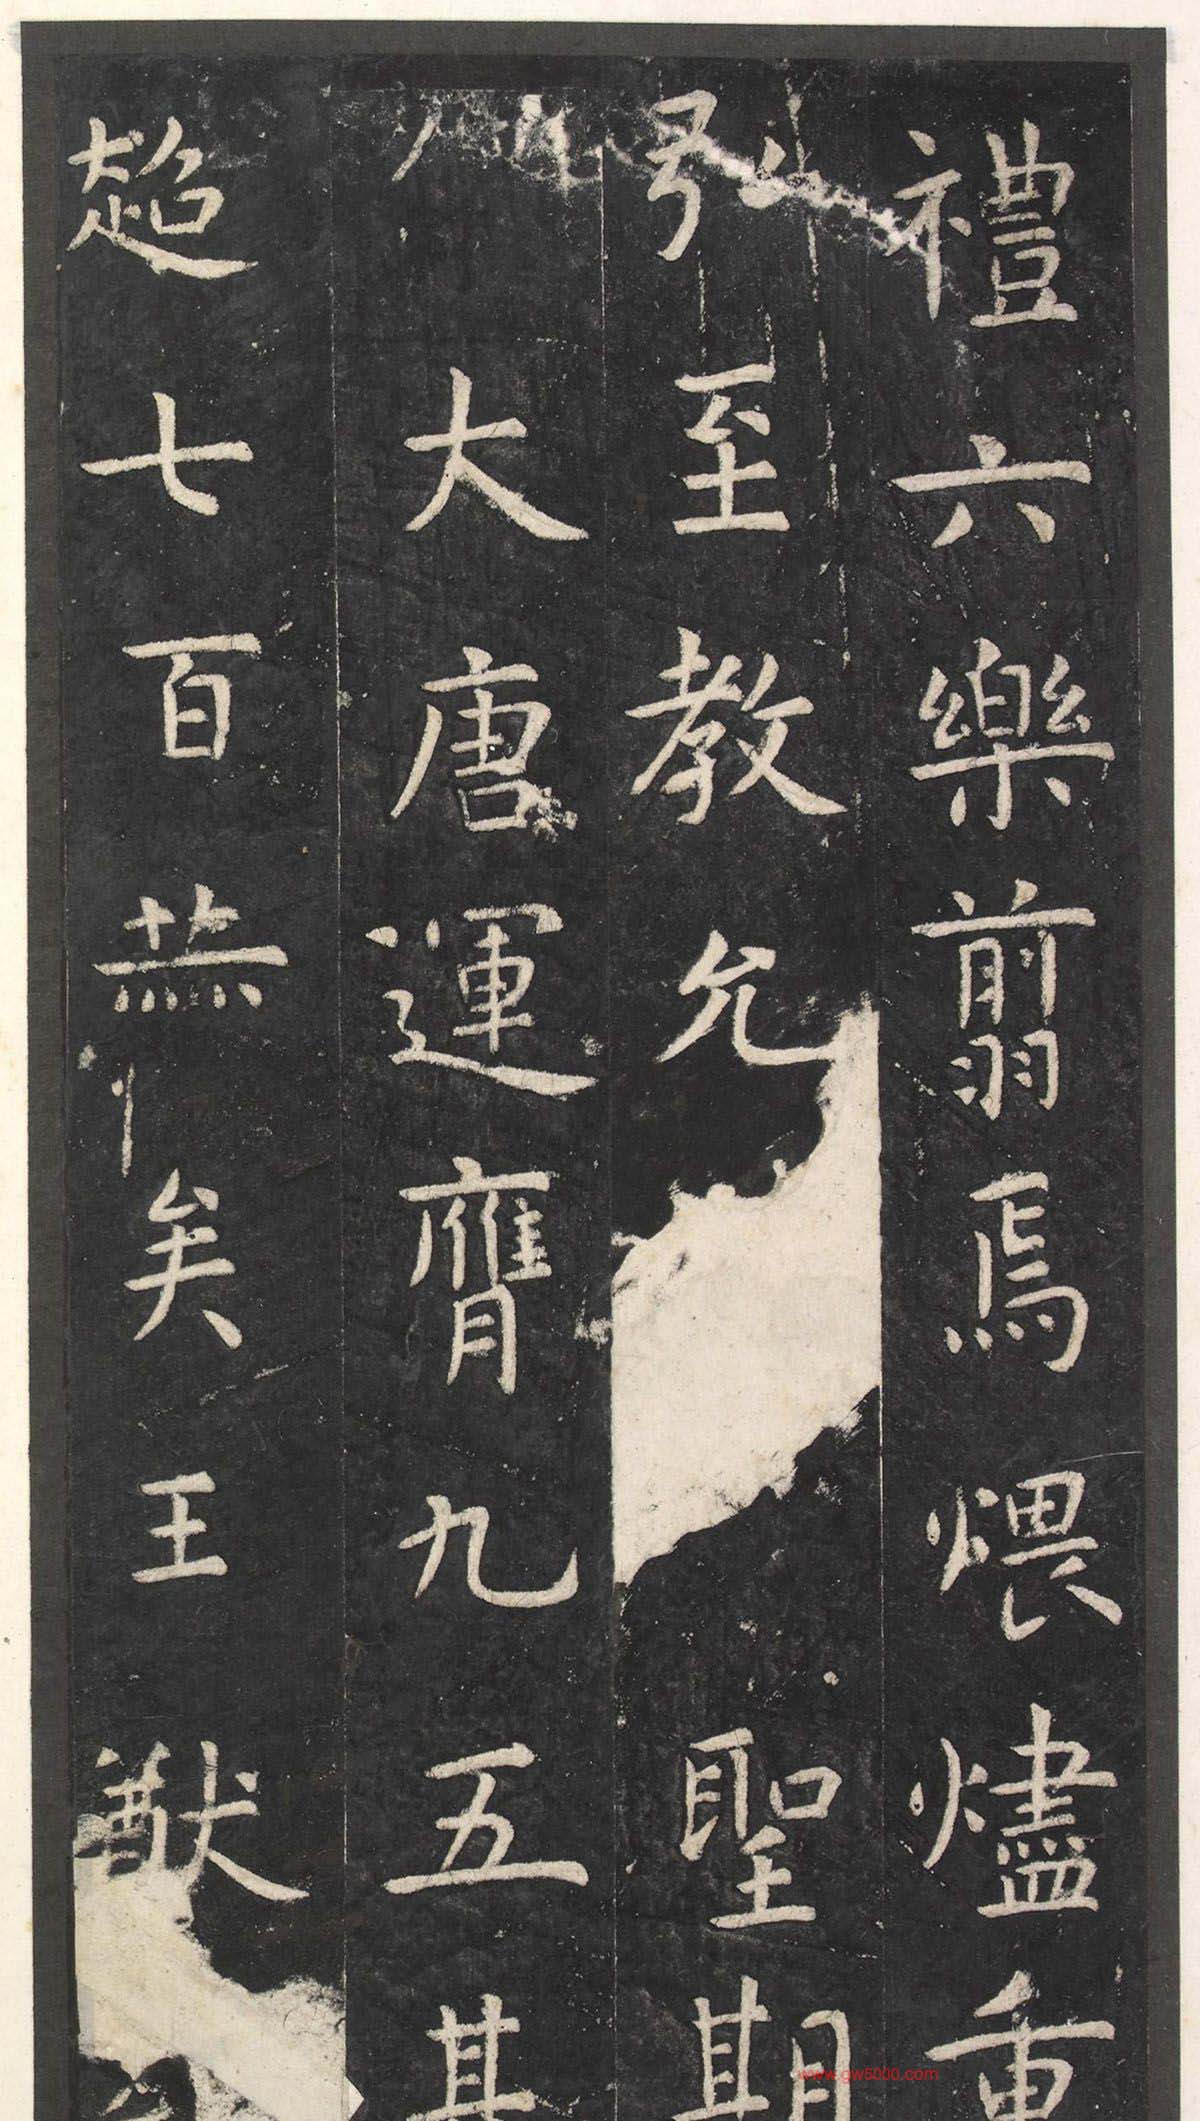 禮六樂翦焉煨燼重
弘至教允聖期
大唐運膺九五基
超七百煞矣王猷
www.gw5000.com